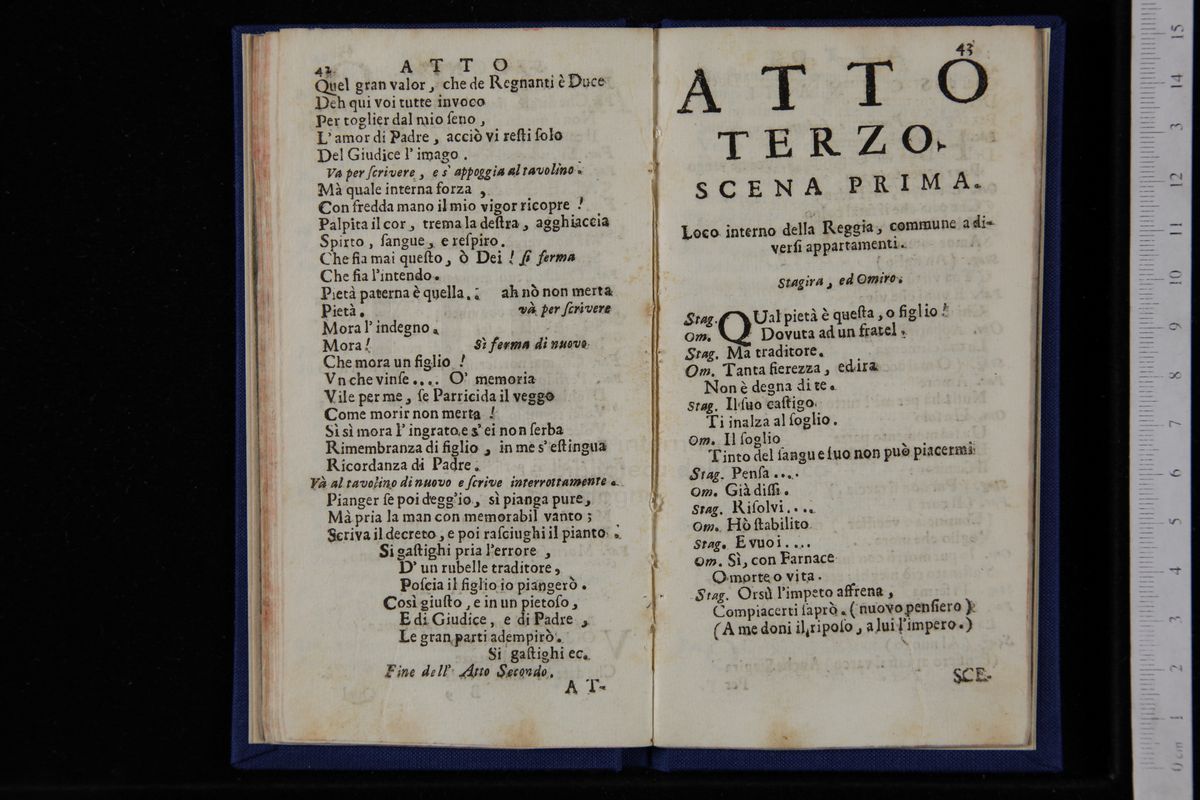 42 ATTO
Quel gran valor, che de Regnanti è Duce
Deh qui voi tutte invoco
Per toglier dal mio ſeno,
L'amor di Padre, acciò vi reſti ſolo
Del Giudice l'imago.
Va per ſcrivere, e s'appoggia al tavolino.
Mà quale interna forza,
Con fredda mano il mio vigor ricopre!
Palpita il cor, trema la deſtra, agghiaccia
Spirto, ſangue, e reſpiro.
Che fia mai queſto, ò Dei! ſi ferma
Che fia l'intendo.
Pietà paterna è quella.. ah nò non merta
Pietà. và per ſcrivere
Mora l'indegno.
Mora! Si ferma di nuovo
Che mora un figlio!
Vn che vinſe.... O' memoria
Vile per me, ſe Parricida il veggo
Come morir non merta!
Sì sì mora l'ingrato, e s'ei non ſerba
Rimembranza di figlio, in me s'eſtingua
Ricordanza di Padre.
Và al tavolino di nuovo e ſcrive interrottamente.
Pianger ſe poi degg'io, sì pianga pure,
Mà pria la man con memorabil vanto;
Scriva il decreto, e poi raſciughi il pianto.
Si gaſtighi pria l'errore,
D'un rubelle traditore,
Poſcia il figlio io piangerò.
Così giuſto, e in un pietoſo,
E di Giudice, e di Padre,
Le gran parti adempirò.
Si gaſtighi ec.
Fine dell' Atto Secondo.
AT-
43
ATTO
TERZO.
SCENA PRIMA.
Loco interno della Reggia, commune a di-
verſi appartamenti.
Stagira, ed Omiro.
Stag. QUal pietà è queſta, o figlio!
Om. Dovuta ad un fratel.
Stag. Ma traditore.
Om. Tanta fierezza, ed ira
Non è degna di te.
Stag. Il ſuo caſtigo
Ti inalza al ſoglio.
Om. Il ſoglio
Tinto del ſangue ſuo non può piacermi
Stag. Penſa....
Om. Già diſſi.
Stag. Riſolvi....
Om. Hò ſtabilito
Stag. E vuoi....
Om. Sì, con Farnace
O morte o vita.
Stag. Orsù l'impeto affrena,
Compiacerti ſaprò. (nuovo penſiero)
(A me doni il ripoſo, a lui l'impero.)
SCE-
0 cm 1 2 3 4 5 6 7 8 9 10 11 12 13 14 15